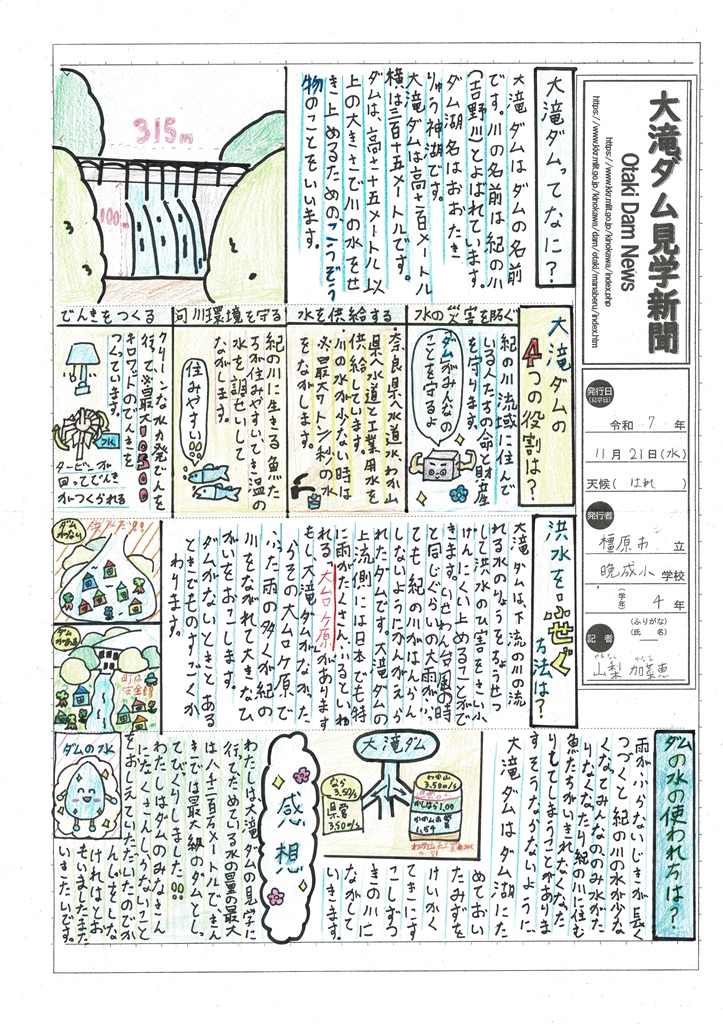 大滝ダム見学新聞
Otaki Dam News
https://www.kkr.mlit.go.jp/kinokawa/index.php
https://www.kkr.mlit.go.jp/kinokawa/dam/otaki/manaberu/index.htm
発行日
(見学日)
令和 7 年
11月21日(水)
天候(はれ)
発行者
橿原市 立
晩成小 学校
(学年) 4 年
記者
(ふりがな)
(氏 名)
山梨 加菜恵
大滝ダムってなに?
大滝ダムはダムの名前
です。川の名前は紀の川
(吉野川)とよばれています。
ダム湖名はおおたき
りゅう神湖です。
大滝ダムは高さ百メートル
横は三百十五メートルです。
ダムは、高さ十五メートル以
上の大きさで川の水をせ
き上めるための、こうぞう
物のことをいいます。
315m
100m
大滝ダムの
4つの役割は?
水の災害を防ぐ
紀の川流域に住んで
いる人たちの命と財産
を守ります。
ダムがみんなの
ことを守るよ
水を供給する
奈良県水道水、わか山
県水道と工業用水を
供給しています。
川の水が少ない時は
※最大7トン/秒の水
をながします。
河川環境を守る
紀の川に生きる魚た
ちが住みやすいてき温の
水を調せいして
ながします。
住みやすい
でんきをつくる
クリーンな水力発でんを
行って※最大10500
キロワットのでんきを
つくっています。
水
タービンが
回ってでんき
がつくられる
洪水を防ぐ
方法は?
大滝ダムは、下流の川の流
れる水のりょうをちょうせつ
して洪水のひ害をさい小
げんにくい上めることがで
きます。いせわん台風の時
と同じぐらいの大雨がふっ
ても紀の川がはんらん
しないようにかんがえら
れたダムです。大滝ダムの
上流側には日本でも特
に雨がたくさんふるといわ
れる「大台ケ原」があります。
もし、大滝ダムがなかった
らその大台ケ原で
ふった雨の多くが紀の
川をながれて大きなひ
がいをおこします。
ダムがないときとある
ときでものすごくか
わります。
ダムが
ない
洪水だ!!
ダムが
ある
町は
安全!!
ダムの水の使われ方は?
雨がふらないじきが長く
つづくと紀の川の水が少な
くなってみんなののみ水がた
りなくなったり紀の川に住む
魚たちがいきれなくなった
りしてしまうことがありま
すそうならないように、
大滝ダムはダム湖にた
めておい
たみずを
けいかく
てきにす
こしずつ
きの川に
ながして
いきます。
大滝ダム
なら
3.50㎥/s
県営
3.50㎥/s
わか山
3.50㎥/s
かしはら1.00
感想
わたしは大滝ダムの見学に
行ってためている水の量の最大
は八千四百万メートルで、きん
きでは最大級のダムとし
てびっくりしました!!
わたしはダムのみなさん
にたくさんしらないこと
をおしえていただいたのでか
んしゃしな
ければとお
もいましたまた
いきたいです。
ダムの水